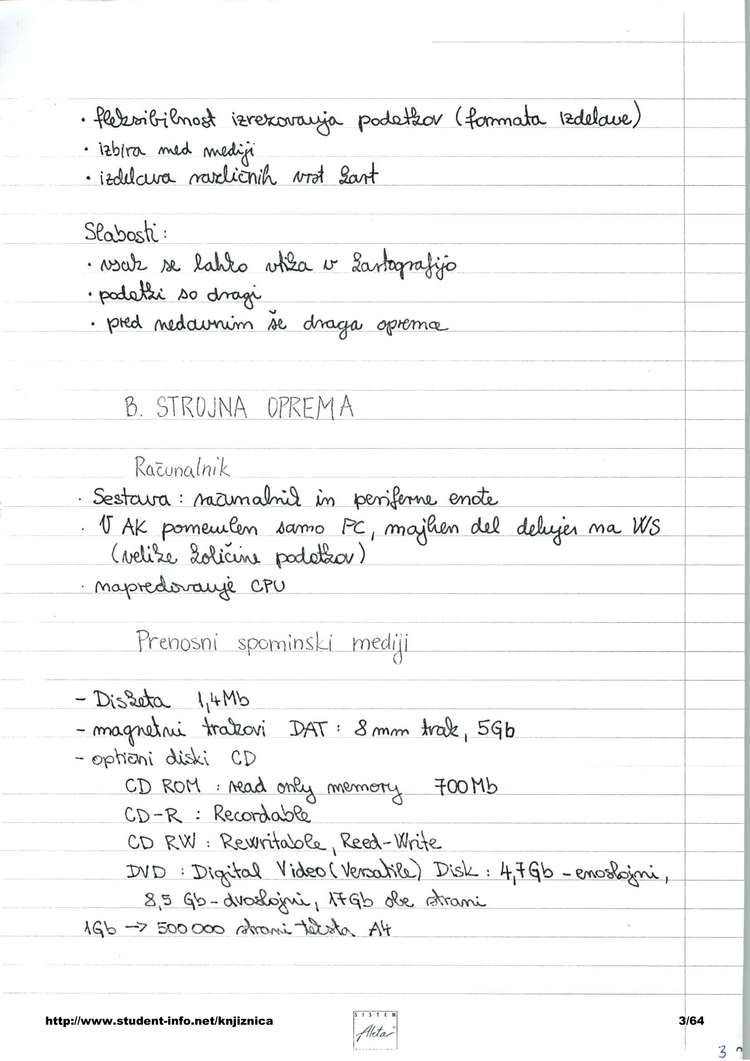 • fleksibilnost izrezovanja podatkov (formata izdelave)
• izbira med mediji
• izdelava različnih vrst kart
Slabosti:
• vsak se lahko vtika v kartografijo
• podatki so dragi
• pred nedavnim še draga oprema
B. STROJNA OPREMA
Računalnik
· Sestava : računalnik in periferne enote
· V AK pomemben samo PC, majhen del delujer na WS
(velike količine podatkov)
· napredovanje CPU
Prenosni spominski mediji
- Disketa 1,4Mb
- magnetni trakovi DAT : 8mm trak, 5Gb
- optični diski CD
CD ROM : read only memory 700Mb
CD-R : Recordable
CD RW : Rewritable, Reed-Write
DVD : Digital Video (Versatile) Disk : 4,7Gb - enoslojni,
8,5 Gb - dvoslojni, 17Gb obe strani
1Gb → 500 000 strani teksta A4
http://www.student-info.net/knjiznica
SISTEM
Akta
3/64
3